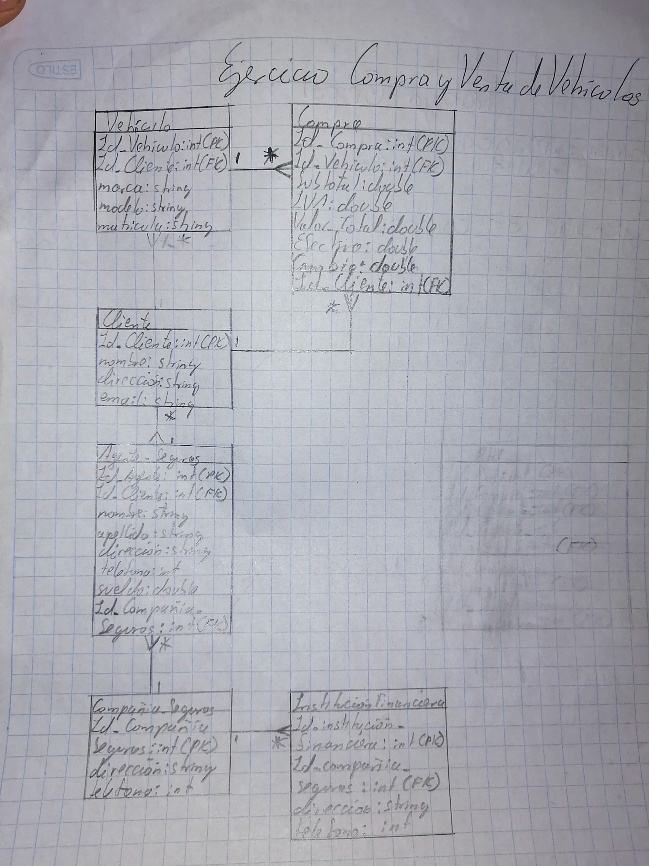 ESTILO
Ejercicio Compra y Venta de Vehículos
Vehículo
Id_Vehiculo:int(PK)
Id_Cliente:int(FK)
marca:string
modelo:string
matricula:string
1
*
Compra
Id_Compra:int(PK)
Id_Vehiculo:int(FK)
Substotal:double
IVA:double
Valor_Total:double
double
Cambio:double
Id_Cliente: int(FK)
*
*
Cliente
Id_Cliente:int(PK)
nombre: string
dirección:string
email: string
1
*
1
Agente_Seguros
Id_Agente: int(PK)
Id_Cliente: int(FK)
nombre:string
apellido:string
dirección:string
telefono:int
sueldo:double
Id_Compañia_
Seguros: int(FK)
*
1
Compañia_Seguros
Id_Compañia
Seguros:int(PK)
dirección:string
telefono: int
1
*
Institución Financiera
Id_institución_
financiera: int(PK)
Id_compañia_
seguros: int(FK)
dirección:string
telefono: int
(FK)